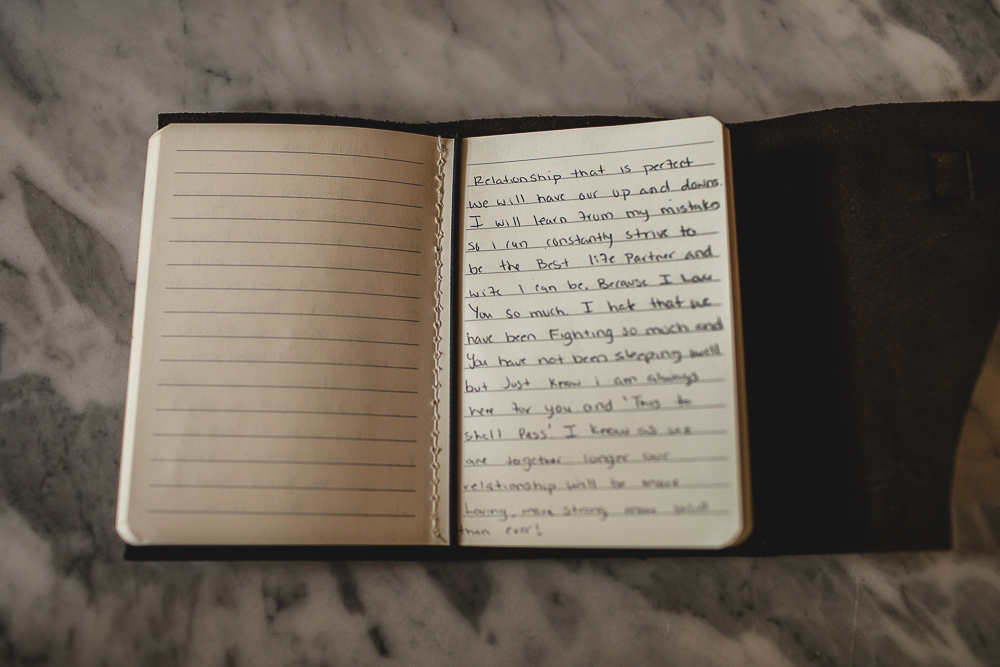 Relationship that is perfect
we will have our up and downs.
I will learn from my mistake
so i can constantly strive to
be the Best life Partner and
wife I can be. Because I Love
You so much. I hate that we
have been Fighting so much and
You have not been sleeping well
but Just Know i am always
here for you and "This to
shell Pass". I know as we
are together longer our
relationship will be more
Loving, more strong
than ever!